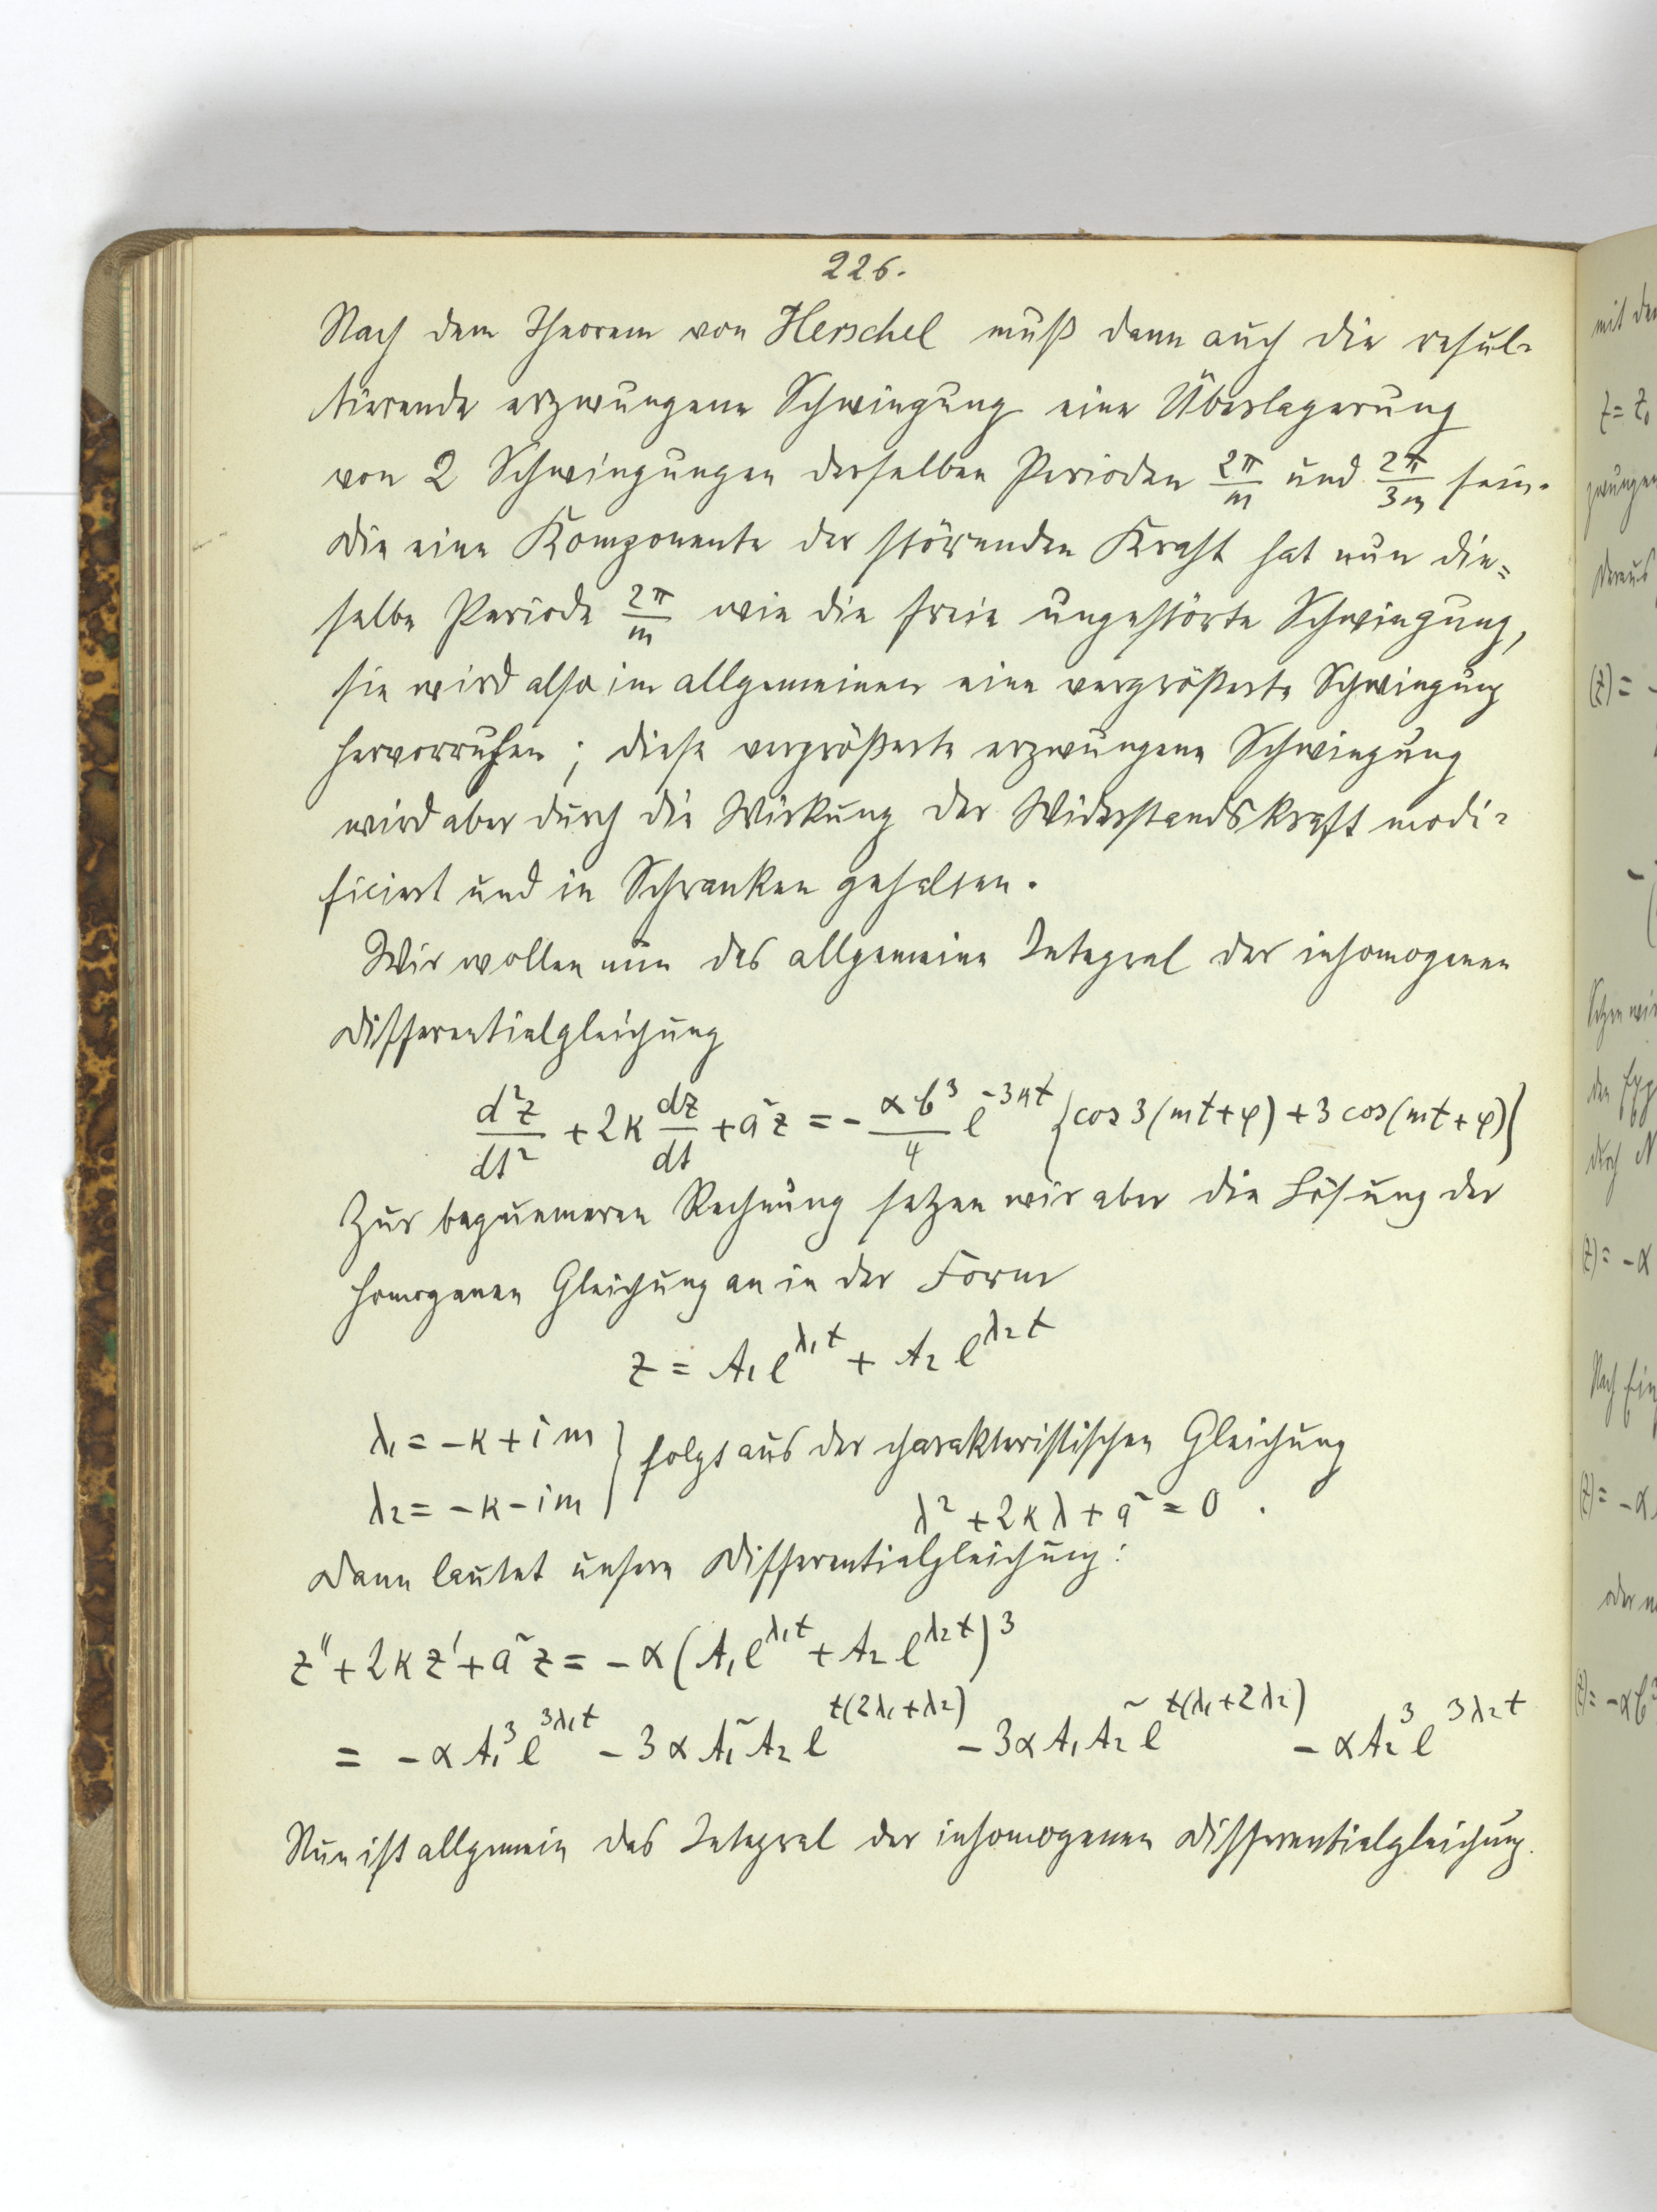 226.
Nach dem Theorem von Herschel muß dann auch die resul-
tierende erzwungene Schwingung eine Überlagerung
von 2 Schwingungen derselben Perioden 2π/m und 2π/3m sein.
Die eine Komponente der störenden Kraft hat nun die=
selbe Periode 2π/m wie die freie ungestörte Schwingung,
sie wird also im allgemeinen eine vergrößerte Schwingung
hervorrufen; diese vergrößerte erzwungene Schwingung
wird aber durch die Wirkung der Widerstandskraft modi-
ficiert und in Schranken gehalten.
Wir wollen nun das allgemeine Integral der inhomogenen
Differentialgleichung
d²z/dt² + 2κ dz/dt + a²z = - αb³/4 e^{-3κt} {cos 3(mt+φ) + 3 cos(mt+φ)}
Zur bequemeren Rechnung setzen wir aber die Lösung der
homogenen Gleichung an in der Form
z = A₁e^{λ₁t} + A₂e^{λ₂t}
λ₁ = -κ + im } folgt aus der charakteristischen Gleichung
λ₂ = -κ - im } λ² + 2κλ + a² = 0 .
Dann lautet unsere Differentialgleichung:
z'' + 2κz' + a²z = -α(A₁e^{λ₁t} + A₂e^{λ₂t})³
= -αA₁³e^{3λ₁t} - 3αA₁²A₂e^{t(2λ₁+λ₂)} - 3αA₁A₂²e^{t(λ₁+2λ₂)} - αA₂³e^{3λ₂t}
Nun ist allgemein das Integral der inhomogenen Differentialgleichung.
mit
z = z₀
Daraus
(z) = -
Setzen wir
durch
(z) = -α
Nach
(z) = -α
oder